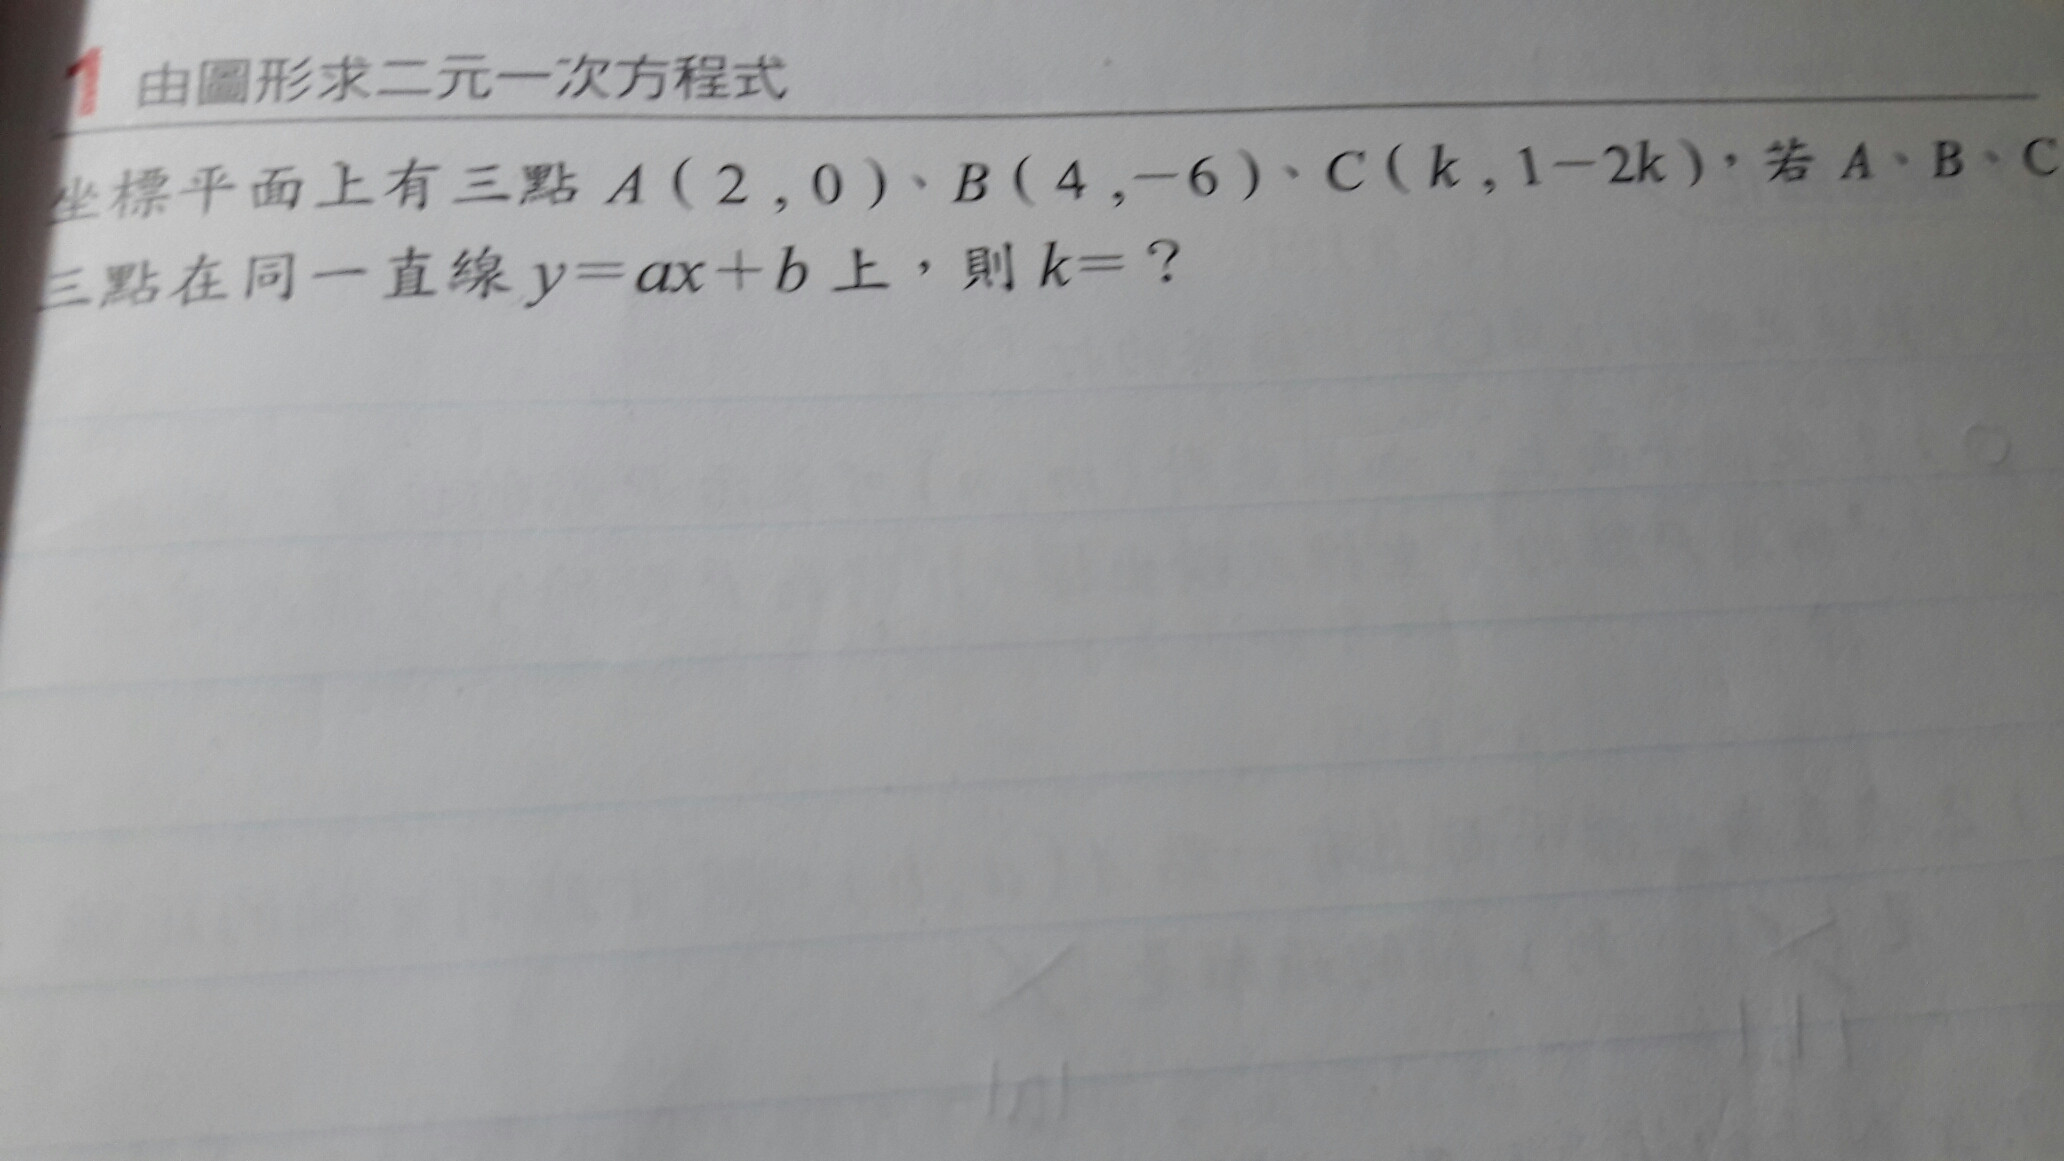 1 由圖形求二元一次方程式
坐標平面上有三點 A(2,0)、B(4,-6)、C(k,1-2k),若 A、B、C
三點在同一直線 y=ax+b 上,則 k=?